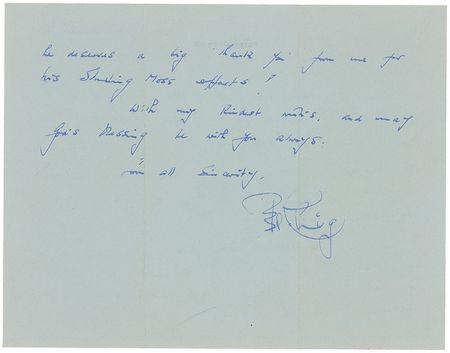 he deserves a big 'thank you' from me for
his Stirling Moss efforts!
With my kindest wishes, and may
God's Blessing be with you always.
in all Sincerity,